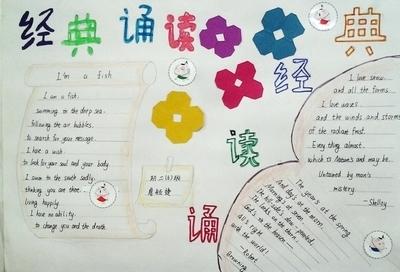 经典诵读
典
经
读
诵
I'm a fish
I am a fish,
swimming in the deep sea,
following the air bubbles,
to search for your message.
I have a wish,
to look for your soul and your body.
I swim to the south sadly
thinking you are there
living happily
I have no ability
to change you and the death
初二(4)班
I love snow,
and all the forms
I love waves
and the winds and storms
of the radiant frost.
Every thing almost
which is Nature's and may be.
Untainted by man's
misery.
—Shelley
The year's at the spring
And day's at the morn,
Morning's at seven
The hillside's dew-pearled,
The lark's on the
God's in his heaven
All's right
with the world!
—Robert
Browning